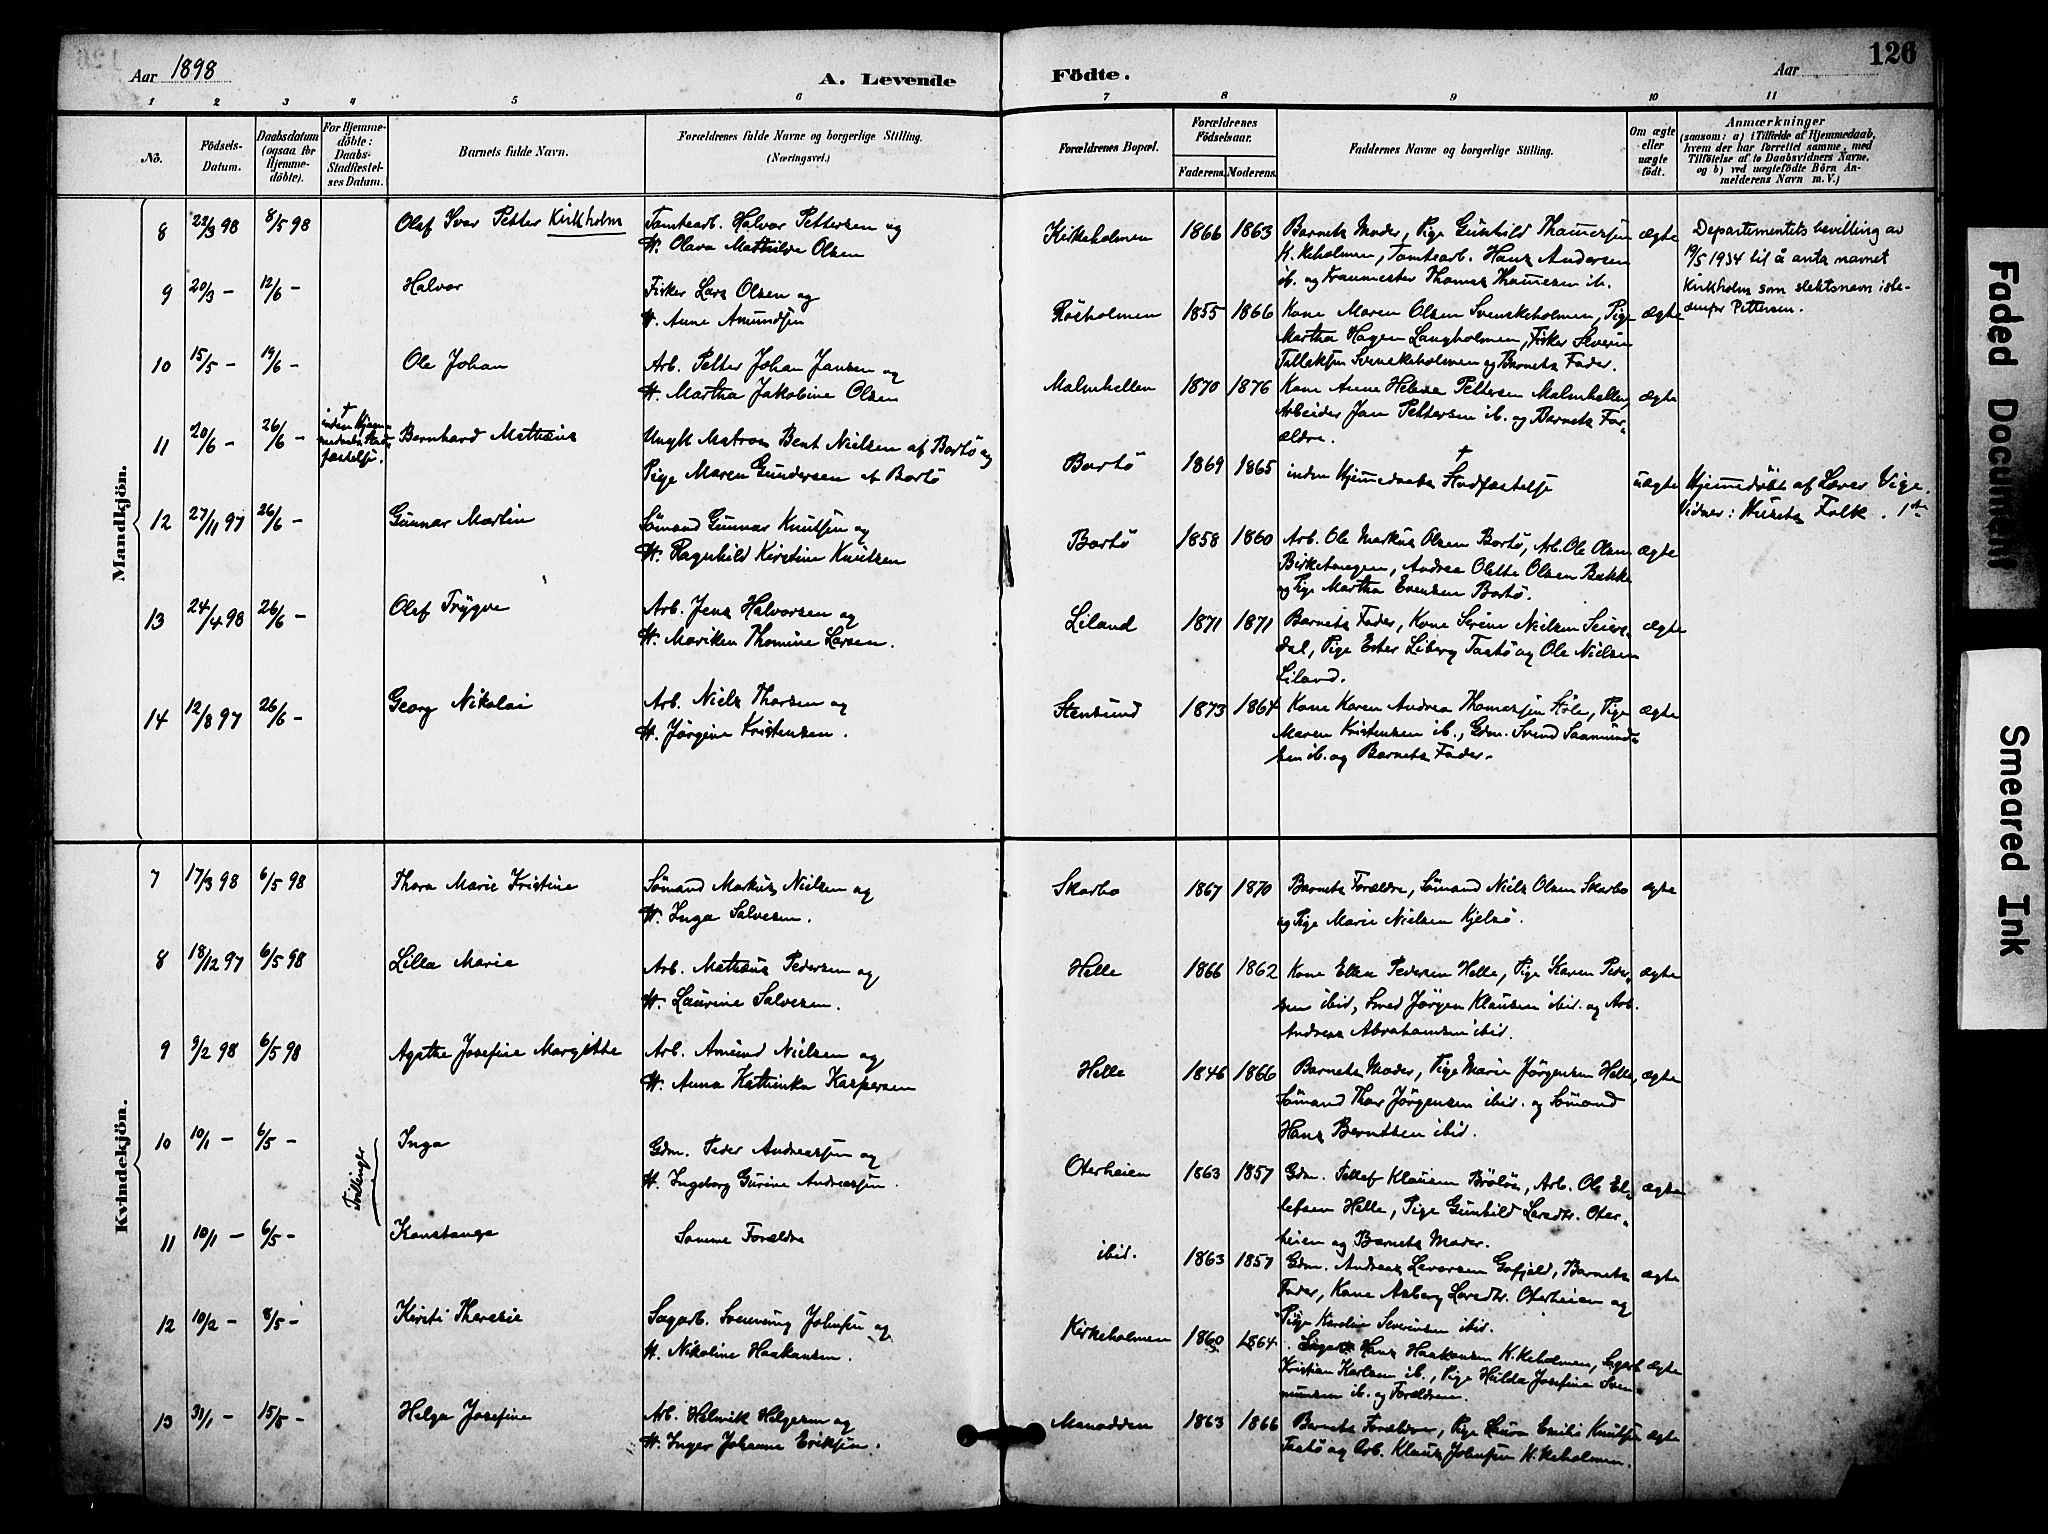 Aar 1898
A. Levende
Födte.
Aar
126
1 2 3 4 5 6 7 8 9 10 11
Nö.
Födsels-
Datum.
Daabsdatum
(ogsaa for
Hjemme-
döbte).
For Hjemme-
döbte:
Daabs-
Stadfæstel-
ses Datum.
Barnets fulde Navn.
Forældrenes fulde Navne og borgerlige Stilling.
(Næringsvei.)
Forældrenes Bopæl.
Forældrenes
Födselsaar.
Faderens. Moderens.
Faddernes Navne og borgerlige Stilling.
Om ægte
eller
uægte
født.
Anmærkninger
(saasom: a) i Tilfælde af Hjemmedaab,
hvem der har forrettet samme, med
Tilföielse af to Daabsvidners Navne.
og b) ved uægtefödte Börn An-
melderens Navn m. V.)
Mandkjön.
8 22/3 98 8/5 98 Olaf Ivar Petter Kirkholm Tomtearb. Halvor Pettersen og
H. Olava Mathilde Olsen
Kirkeholmen 1866 1863 Barnets Moder, Pige Gunhild Thomesen
K.keholmen, Tomtearb. Hans Andersen
ib. og Thomas Thomesen ib.
ægte
Departementets bevilling av
19/5 1934 til å anta navnet
Kirkholm som slektsnavn iste-
denfor Pettersen.
9 20/3 – 12/6 – Halvor Fisker Lars Olsen og
H. Anne Amundsen
Rösholmen 1855 1866 Kone Maren Olsen Svenskeholmen, Pige
Martha Hagen Langholmen, Fisker Severin
Tellefsen Svenskeholmen og Barnets Fader.
ægte
10 15/5 – 19/6 – Ole Johan Arb. Petter Johan Jansen og
H. Martha Jakobine Olsen
Malmhellen 1870 1876 Kone Anne Helene Pettersen Malmhellen,
Arbeider Jan Pettersen ib. og Barnets For-
ældre.
ægte
11 20/6 – 26/6 – † inden Hjem-
medaabs Stad-
fæstelse.
Bernhard Mathæus Ungk Matros Bent Nielsen af Bortö og
Pige Maren Gundersen af Bortö
Bortö 1869 1865 † inden Hjemmedaabs Stadfæstelse
uægte
Hjemmedöbt af Lærer Vige.
Vidner: Husets Folk. 1ste
12 27/11 97 26/6 – Gunnar Martin Sömand Gunnar Knutsen og
H. Ragnhild Kirstine Knutsen
Bortö 1858 1860 Arb. Ole Markus Olsen Bortö, Arb. Ole Olsen
Birketangen, Andrea Olette Olsen Bakke
og Pige Martha Evensen Bortö.
ægte
13 24/4 98 26/6 – Olaf Trygve Arb. Jens Halvorsen og
H. Mariken Thomine Larsen.
Liland 1871 1871 Barnets Fader, Kone Serine Nielsen Seiers-
dal, Pige Ester Liberg Tastö og Ole Nielsen
Liland.
ægte
14 12/8 97 26/6 – Georg Nikolai Arb. Niels Thorsen og
H. Jörgine Kristensen.
Stensund 1873 1864 Kone Karen Andrea Thomassen Stöle, Pige
Maren Kristensen ib., Gdm. Svend Saamund-
sen ib. og Barnets Fader.
ægte
Kvindekjön.
7 17/3 98 6/5 98 Thora Marie Kristine Sömand Markus Nielsen og
H. Inga Salvesen.
Skarbo 1867 1870 Barnets Forældre, Sömand Niels Olsen Skarbo
og Pige Marie Nielsen Kjelsö.
ægte
8 18/12 97 6/5 98 Lilla Marie Arb. Mathæus Pedersen og
H. Laurine Salvesen.
Helle 1866 1862 Kone Ellen Pedersen Helle, Pige Karen Peder-
sen ibid, Smed Jörgen Klausen ibid. og Arb.
Andreas Abrahamsen ibid.
ægte
9 9/2 98 6/5 98 Agathe Josefine Margitte Arb. Amund Nielsen og
H. Anna Kathinka Kaspersen
Helle 1846 1866 Barnets Moder, Pige Marie Jörgensen Helle,
Sömand Thor Jörgensen ibid. og Sömand
Hans Berntsen ibid.
ægte
Tvillinger
10 10/1 – 6/5 – Inga Gdm. Peder Andreassen og
H. Ingeborg Gurine Andreassen.
Oterheien 1863 1857 Gdm. Tellef Klausen Brölös, Arb. Ole El-
lefsen Helle, Pige Gunhild Larsdtr. Oter-
heien og Barnets Moder.
ægte
11 10/1 – 6/5 – Konstanse Samme Forældre
ibid. 1863 1857 Gdm. Andreas Levorsen Gofjeld, Barnets
Fader, Kone Aasberg Larsdtr. Oterheien og
Pige Karoline Severinsen ibid.
ægte
12 10/2 – 8/5 – Kirsti Theresie Sagarb. Svennung Johnsen og
H. Nikoline Haakansen.
Kirkeholmen 1860 1864 Sagarb. Hans Haakansen K.keholmen, Sagarb
Kristian Karlsen ib., Pige Hilda Josefine Sven-
nunsen ib. og Forældrene.
ægte
13 31/1 – 15/5 – Helga Josefine Arb. Helmik Helgesen og
H. Inger Johanne Eriksen.
Monodden 1863 1866 Barnets Forældre, Pige Laura Emilie Knutsen
Tastö og Arb. Klaus Johnsen K.keholmen.
ægte
Faded Document
Smeared Ink